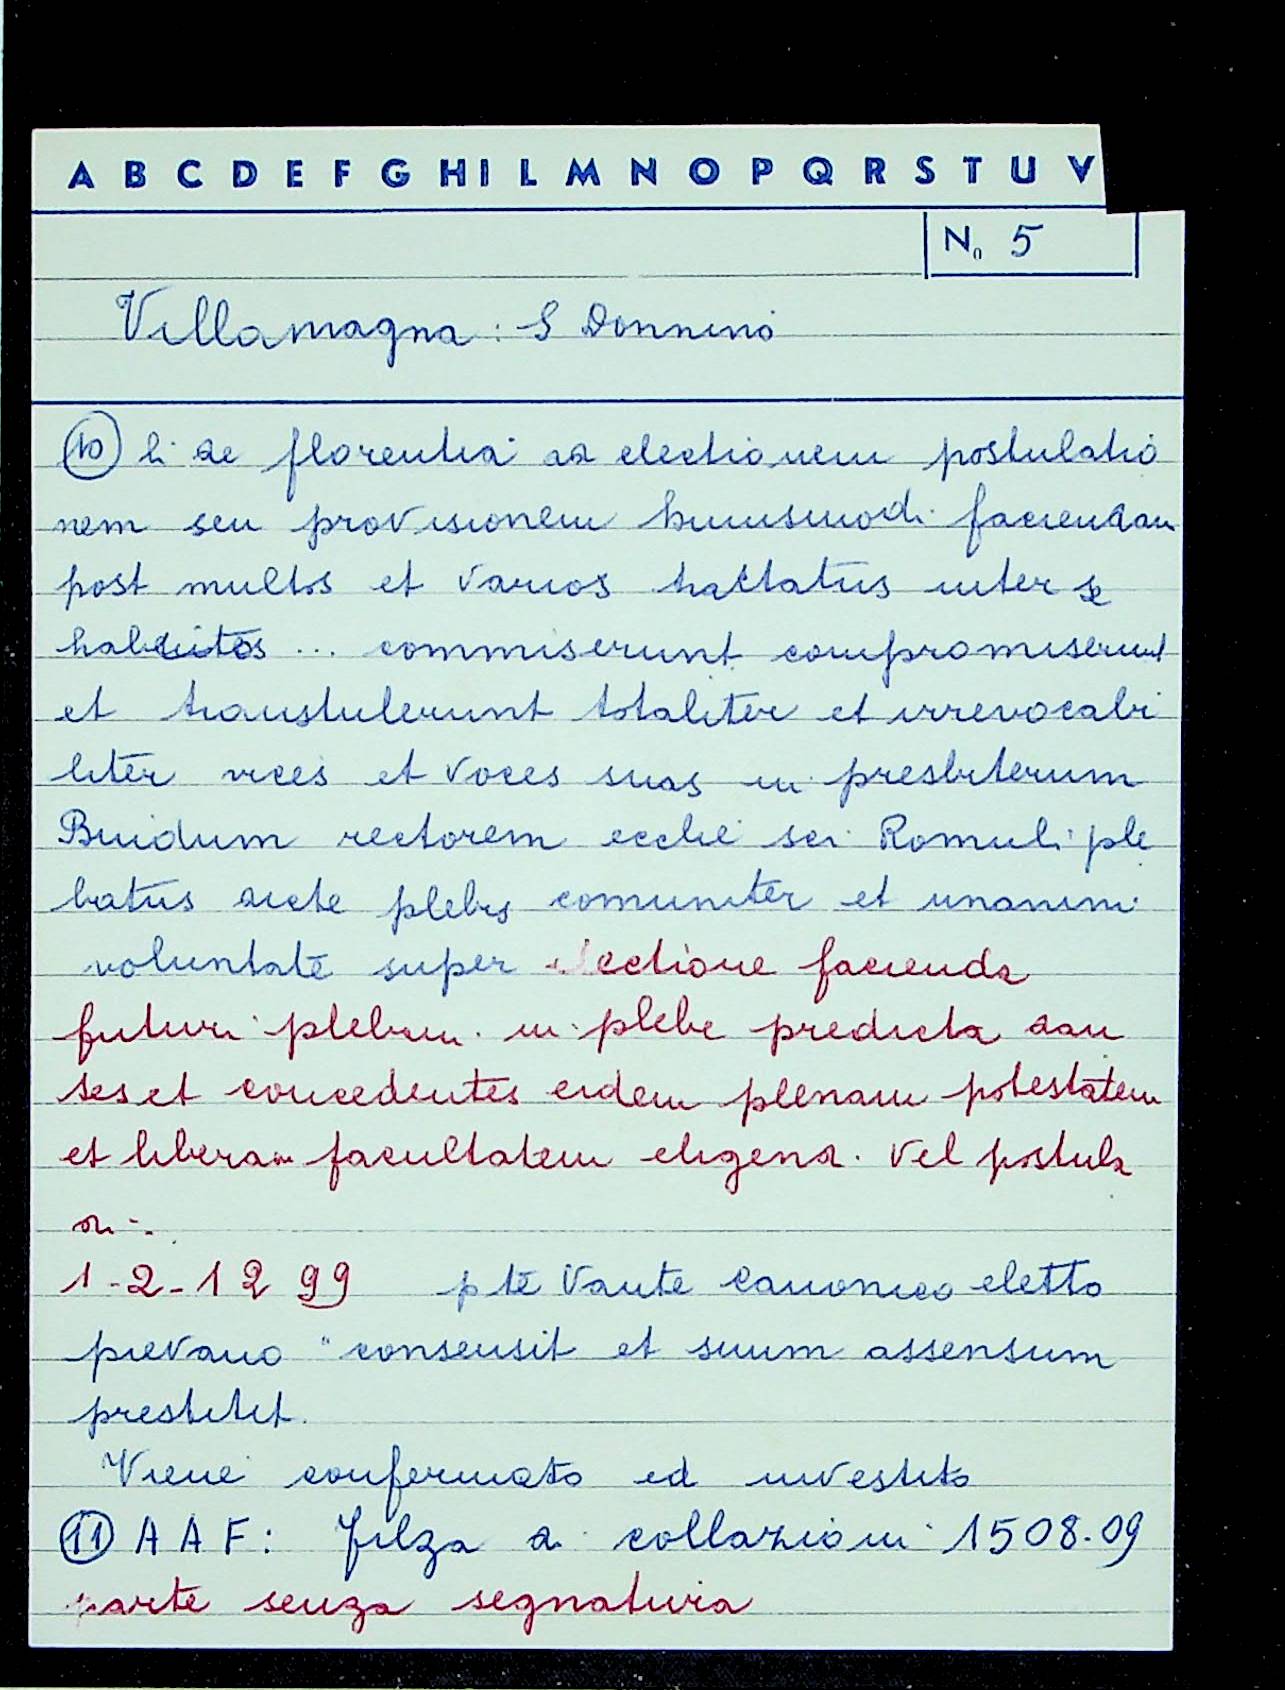 A B C D E F G H I L M N O P Q R S T U V
N. 5
Villamagna: S Donnino
(10) li de florentia ad electionem postulatio
nem seu provisionem huiusmodi faciendam
post multos et varios tractatus inter se
habitos ... commiserunt compromiserunt
et transtulerunt totaliter et irrevocabi
liter vices et voces suas in presbiterum
Buidum rectorem ecclie sci Romuli ple
batus dicte plebis comuniter et unanimi
voluntate super electione facienda
futuri plebani in plebe predicta dan
tes et concedentes eidem plenam potestatem
et liberam facultatem eligendi vel postula
di..
1-2-1299 pte Vante canonico eletto
pievano "consensit et suum assensum
prestitit.
Viene confermato ed investito
(11) A A F: Filza di collazioni 1508-09
parte senza segnatura